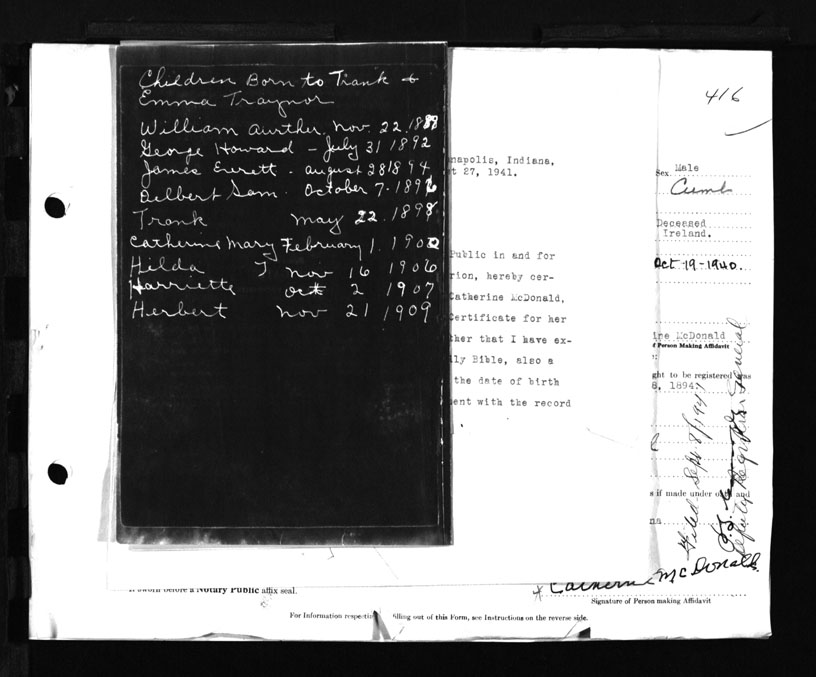 Children Born to Frank &
Emma Traynor
William Aurther. Nov. 22, 1888
George Howard - July 31 1892
James Everett - august 28 1894
Delbert Sam. October 7. 1896
Frank May 22. 1898
Catherine Mary February 1. 1900
Hilda J Nov 16 1906
Harriette oct 2 1907
Herbert Nov 21 1909
napolis, Indiana,
t 27, 1941.
Public in and for
rion, hereby cer-
Catherine McDonald,
Certificate for her
ther that I have ex-
ly Bible, also a
the date of birth
ent with the record
416
Sex Male
Cumb
Deceased
Ireland.
Oct-19-1940.
ine McDonald
f Person Making Affidavit
ght to be registered was
8, 1894.
s if made under oath and
na
Filed Sept 8/1941
Deputy Registrar General
If sworn before a Notary Public affix seal.
Catherine McDonald.
Signature of Person making Affidavit
For Information respectin filling out of this Form, see Instructions on the reverse side.